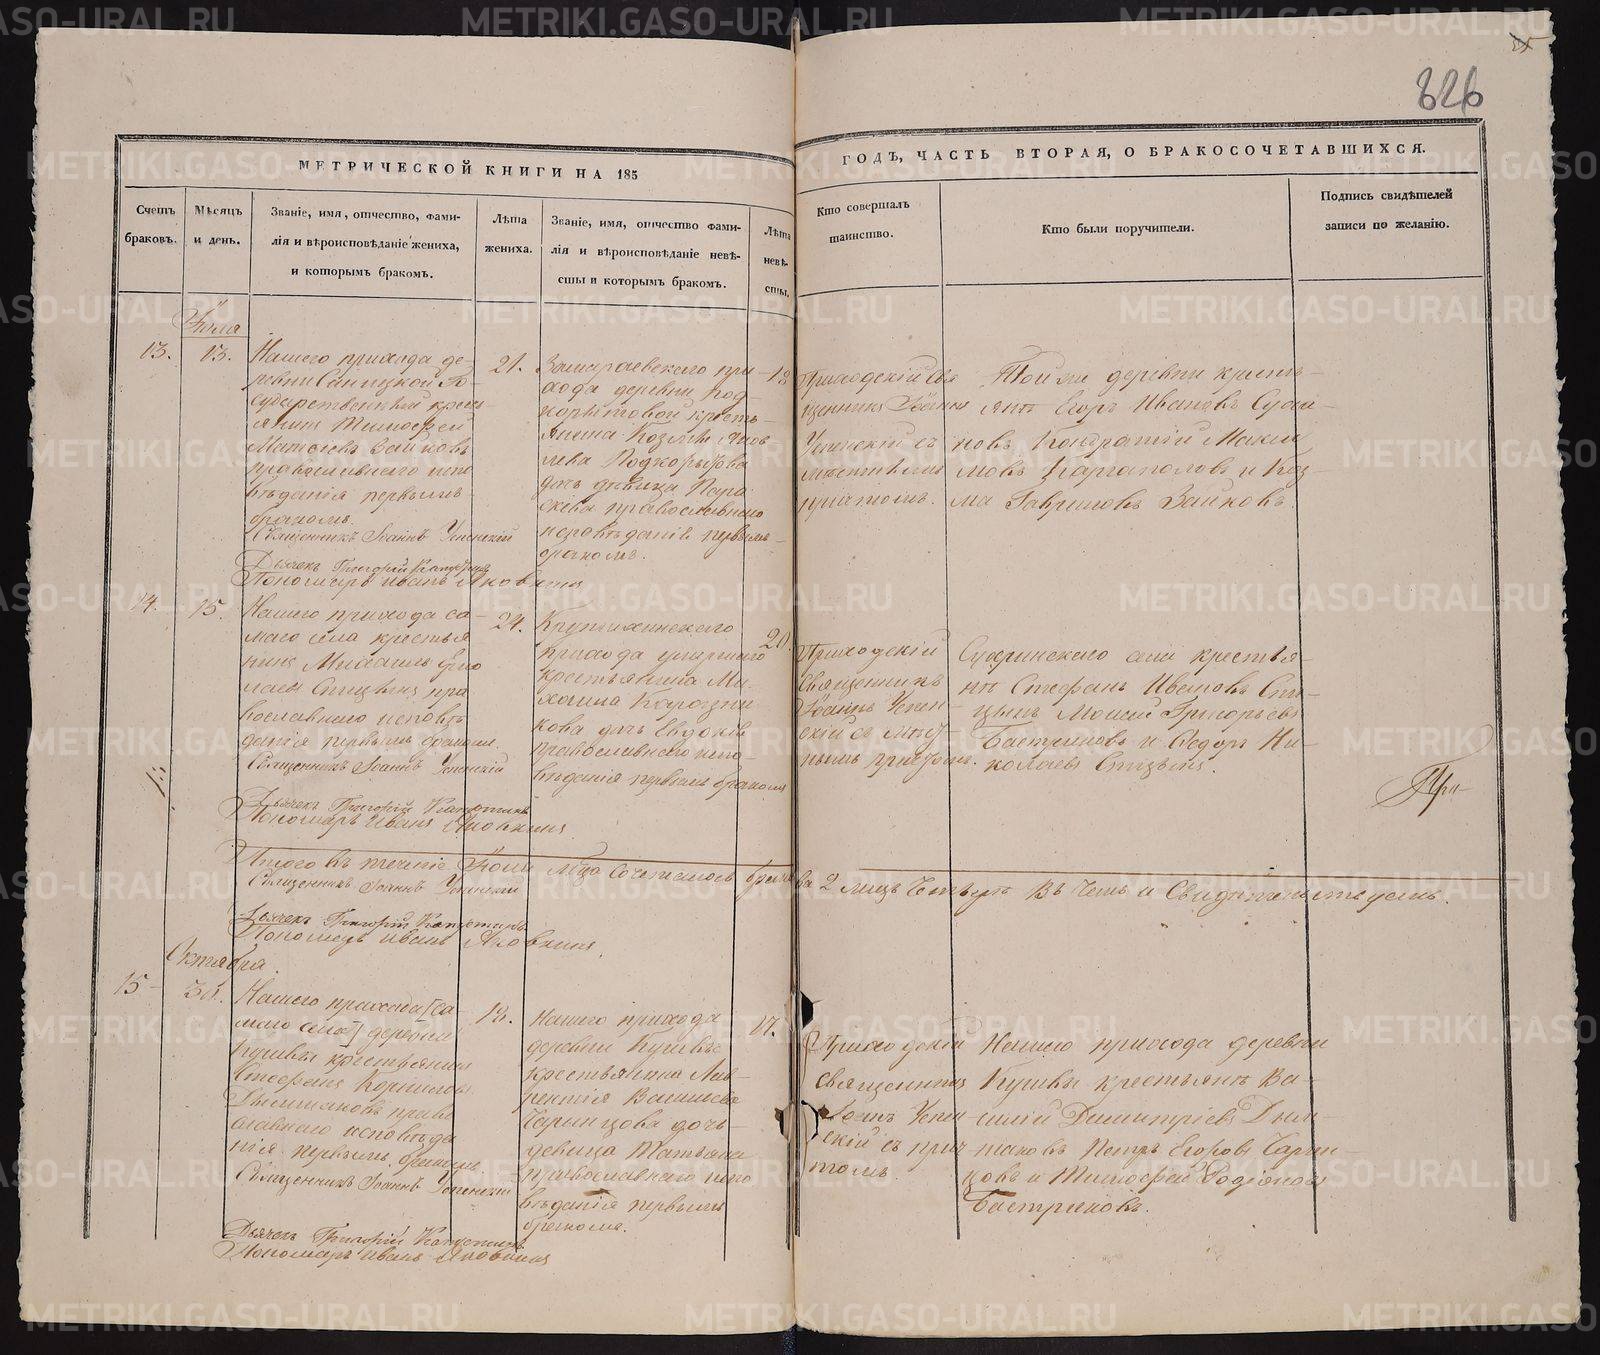 826
МЕТРИЧЕСКОЙ КНИГИ НА 185
ГОДЪ, ЧАСТЬ ВТОРАЯ, О БРАКОСОЧЕТАВШИХСЯ.
Счетъ
браковъ.
Мѣсяцъ
и день.
Званіе, имя, отчество, фами-
лія и вѣроисповѣданіе жениха,
и которымъ бракомъ.
Лѣта
жениха.
Званіе, имя, отчество фами-
лія и вѣроисповѣданіе невѣ-
сты и которымъ бракомъ.
Лѣта
невѣ-
сты.
Кто совершалъ
таинство.
Кто были поручители.
Подпись свидѣтелей
записи по желанію.
Іюля
13.
13.
Нашего прихода де-
ревни
сударственный кресть-
янинъ Тимофей
Матѳеевъ Зайковъ
православнаго испо
вѣданія первымъ
бракомъ.
Священникъ Іоаннъ Успенскій
Дьячекъ Григорій
Пономарь Иванъ Яковкинъ
21.
Замараевскаго при-
хода деревни Под-
корытовой кресть-
янина Козьмы Яков
лева Подкорытова
дочь дѣвица Пара
скева православнаго
исповѣданія первымъ
бракомъ.
18
Приходскій свя
щенникъ Іоаннъ
Успенскій съ
мѣстнымъ
причтомъ.
Той же деревни кресть-
яне Егоръ Ивановъ Суса-
новъ Кондратій Макси
мовъ Каргаполовъ и Коз-
ма Гавриловъ Зайковъ.
14.
15.
Нашего прихода са-
маго села кресться
нинъ Михаилъ Нико
лаевъ Спицынъ пра
вославнаго исповѣ
данія первымъ бракомъ.
Священникъ Іоаннъ Успенскій
Дьячекъ Григорій
Пономарь Иванъ Яковкинъ
24.
Крутихинскаго
прихода умершаго
крестьянина Ми-
хаила
кова дочь Евдокія
православнаго испо-
вѣданія первымъ бракомъ
20.
Приходскій
Священникъ
Іоаннъ Успен-
скій съ мѣст-
нымъ причтомъ.
Сухринскаго села крестья-
не Стефанъ Ивановъ Спи-
цынъ Моисей Григорьевъ
Бастриковъ и Ѳедоръ Ни-
колаевъ Спицынъ.
При-
Итого въ теченіе Іюля м-ца Сочеталось бракомъ
ва 2 лицъ Четыре
Священникъ Іоаннъ Успенскій
Дьячекъ Григорій
Пономарь Иванъ Яковкинъ
Октября
15
30.
Нашего прихода [са-
маго села] деревни
Кушвы крестьянинъ
Стефанъ Корниловъ
Дымшаковъ право
славнаго исповѣда
нія первымъ бракомъ.
Священникъ Іоаннъ Успенскій
Дьячекъ Григорій
Пономарь Иванъ Яковкинъ
18.
Нашего прихода
деревни Кушвы
крестьянина Лав-
рентія Васильева
Барынцова дочь
дѣвица Татьяна
православнаго испо
вѣданія первымъ
бракомъ.
17.
Приходскій
священникъ
Іоаннъ Успен
скій съ прич
томъ.
Нашего прихода деревни
Кушвы крестьяне Ва-
силій Димитріевъ Дым-
шаковъ Петръ Егоровъ Барын-
цовъ и Тимофей Родіоновъ
Бастриковъ.
METRIKI.GASO-URAL.RU